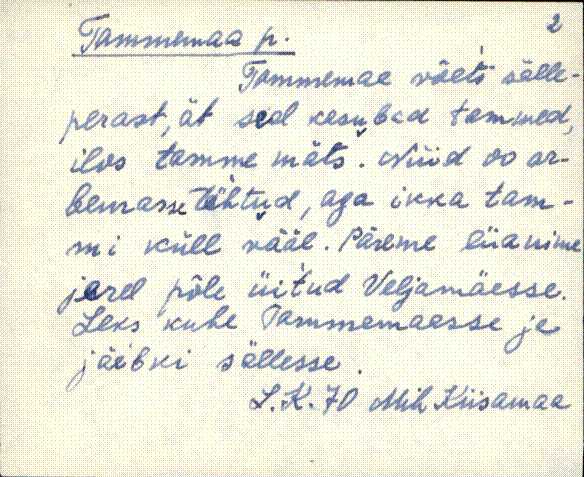 2
Tammemaa p.
Tammemae võets sälle-
perast, ät seel kasubad tammed,
ilos tamme mäts. Nüid oo ar-
bemasse tähtud, aga ikka tam-
mi küll vääl. Päreme lüanime
järel põle üitud Veljamäesse.
Leks kuhe Tammemaesse ja
jäibki sällesse.
L.K. 70 Mih Kiisamaa